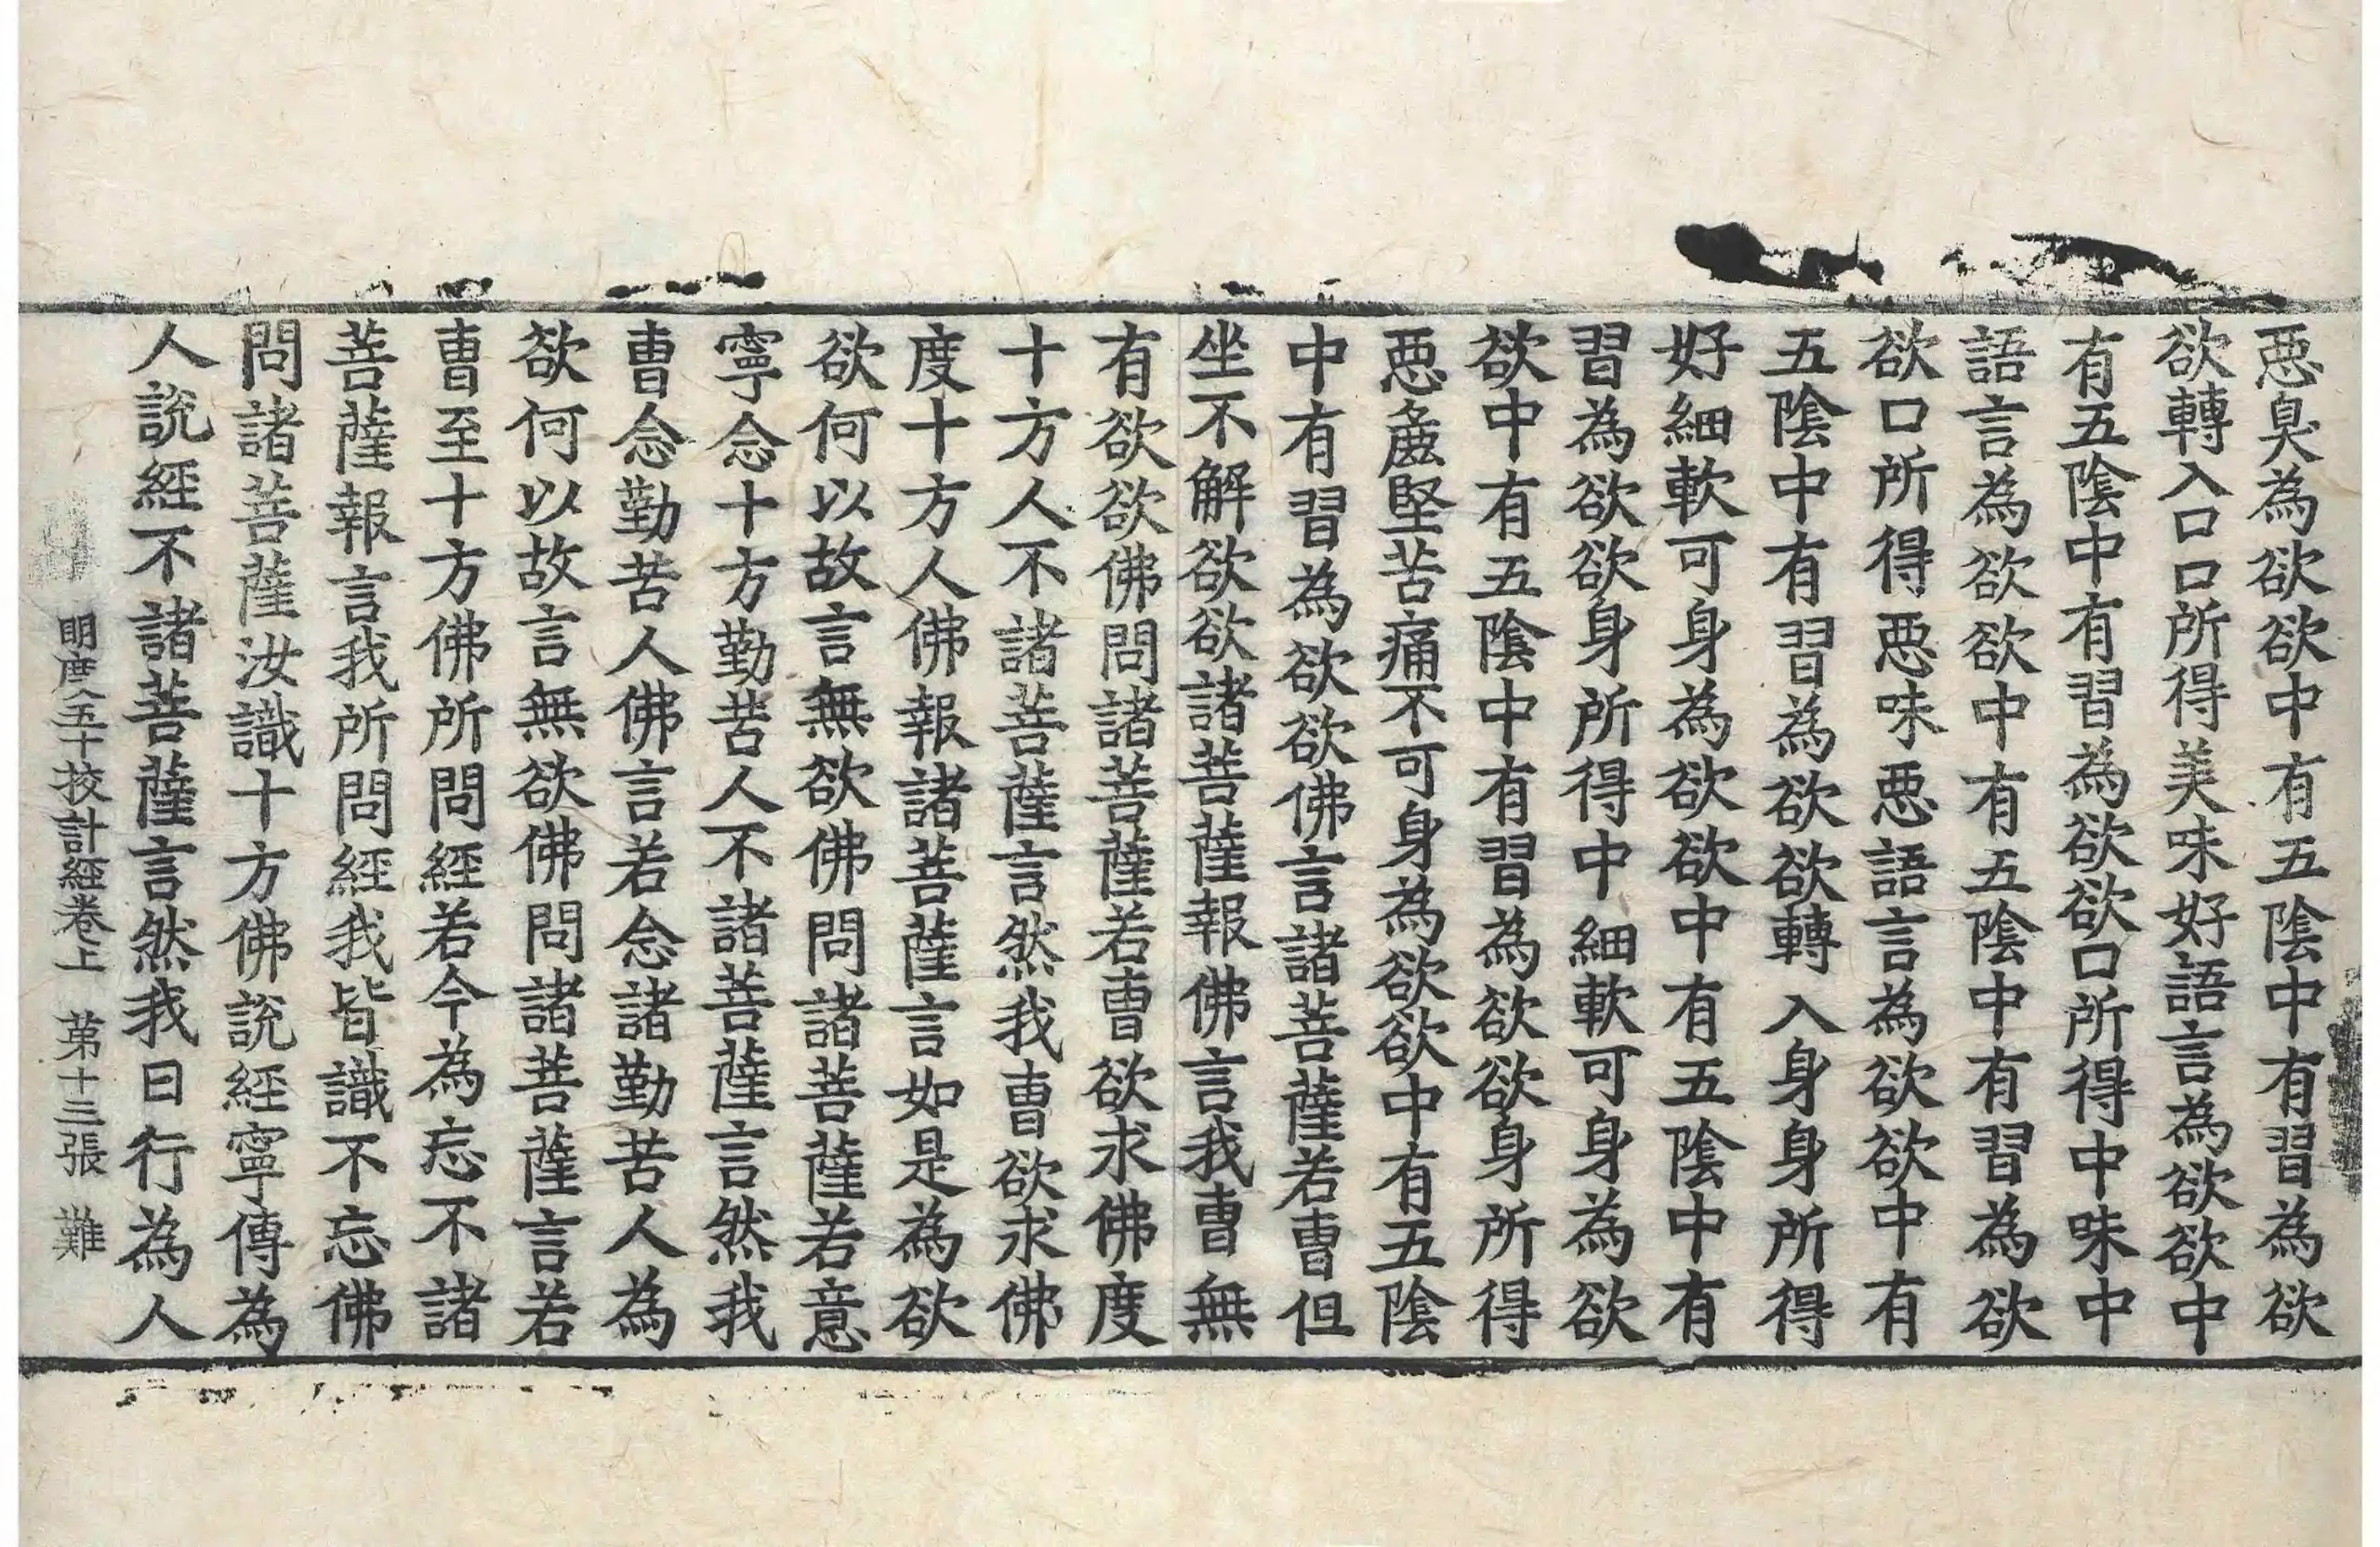 惡臭為欲欲中有五陰中有習為欲
欲轉入口口所得美味好語言為欲欲中
有五陰中有習為欲欲口所得中味中
語言為欲欲中有五陰中有習為欲
欲口所得惡味惡語言為欲欲中有
五陰中有習為欲欲轉入身身所得
好細軟可身為欲欲中有五陰中有
習為欲欲身所得中細軟可身為欲
欲中有五陰中有習為欲欲身所得
惡麁堅苦痛不可身為欲欲中有五陰
中有習為欲欲佛言諸菩薩若曹但
坐不解欲欲諸菩薩報佛言我曹無
有欲欲佛問諸菩薩若曹欲求佛度
十方人不諸菩薩言然我曹欲求佛
度十方人佛報諸菩薩言如是為欲
欲何以故言無欲佛問諸菩薩若意
寧念十方勤苦人不諸菩薩言然我
曹念勤苦人佛言若念諸勤苦人為
欲何以故言無欲佛問諸菩薩言若
曹至十方佛所問經若今為忘不諸
菩薩報言我所問經我皆識不忘佛
問諸菩薩汝識十方佛說經寧傳為
人說經不諸菩薩言然我日行為人
明度五十挍計經卷上 第十三張 難